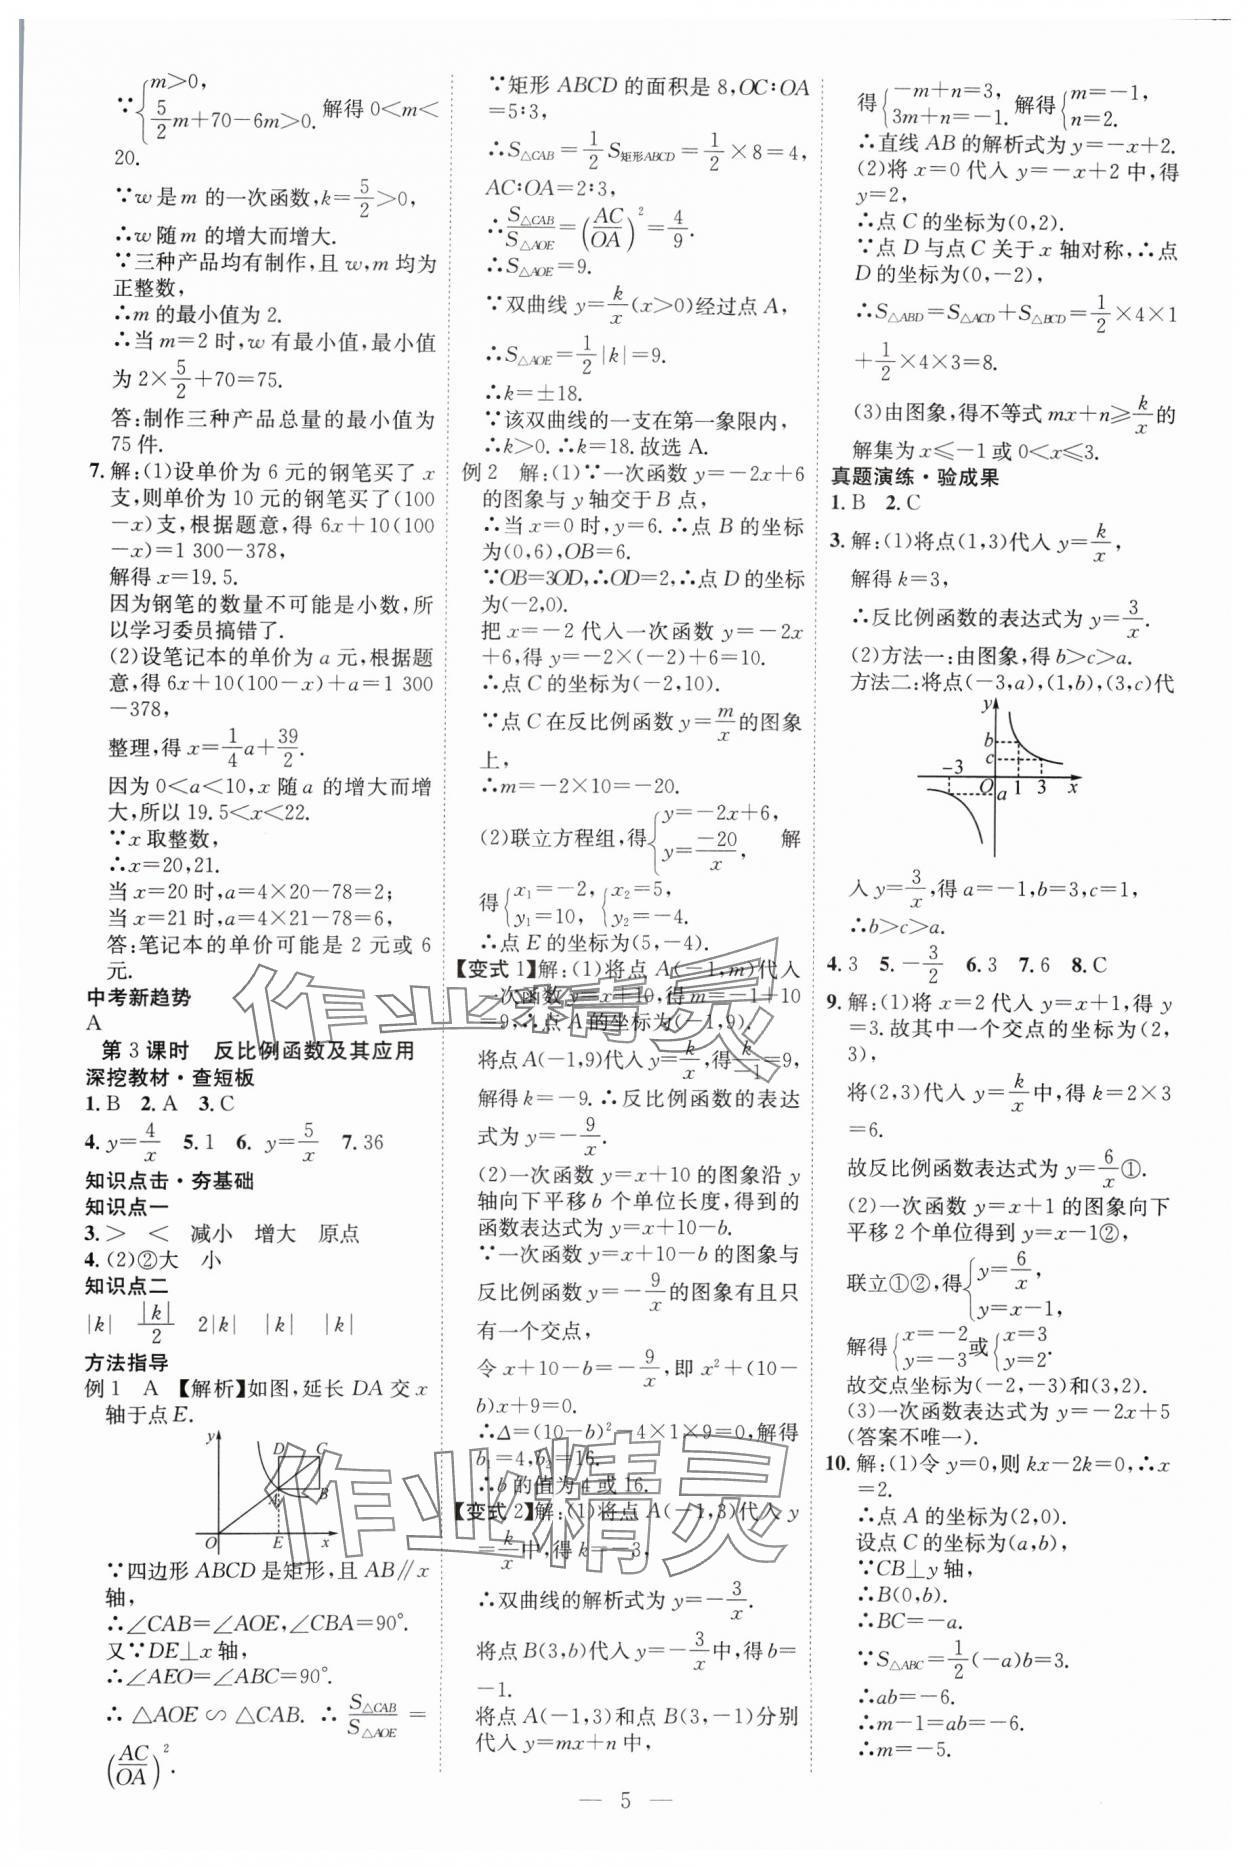 ∵{m>0, 5/2 m+70-6m>0. 解得 0<m<
20.
∵w 是 m 的一次函数,k=5/2>0,
∴w 随 m 的增大而增大.
∵三种产品均有制作,且 w,m 均为
正整数,
∴m 的最小值为 2.
∴当 m=2 时,w 有最小值,最小值
为 2×5/2+70=75.
答:制作三种产品总量的最小值为
75 件.
7. 解:(1)设单价为 6 元的钢笔买了 x
支,则单价为 10 元的钢笔买了(100
-x)支,根据题意,得 6x+10(100
-x)=1 300-378,
解得 x=19.5.
因为钢笔的数量不可能是小数,所
以学习委员搞错了.
(2)设笔记本的单价为 a 元,根据题
意,得 6x+10(100-x)+a=1 300
-378,
整理,得 x=1/4 a+39/2.
因为 0<a<10,x 随 a 的增大而增
大,所以 19.5<x<22.
∵x 取整数,
∴x=20,21.
当 x=20 时,a=4×20-78=2;
当 x=21 时,a=4×21-78=6,
答:笔记本的单价可能是 2 元或 6
元.
中考新趋势
A
第 3 课时 反比例函数及其应用
深挖教材·查短板
1. B 2. A 3. C
4. y=4/x 5. 1 6. y=5/x 7. 36
知识点击·夯基础
知识点一
3. > < 减小 增大 原点
4. (2)②大 小
知识点二
|k| |k|/2 2|k| |k| |k|
方法指导
例 1 A 【解析】如图,延长 DA 交 x
轴于点 E.
y
D C
A B
O E x
∵四边形 ABCD 是矩形,且 AB∥x
轴,
∴∠CAB=∠AOE,∠CBA=90°.
又∵DE⊥x 轴,
∴∠AEO=∠ABC=90°.
∴△AOE∽△CAB. ∴S△CAB/S△AOE=
(AC/OA)².
∵矩形 ABCD 的面积是 8,OC∶OA
=5∶3,
∴S△CAB=1/2 S矩形ABCD=1/2×8=4,
AC∶OA=2∶3,
∴S△CAB/S△AOE=(AC/OA)²=4/9.
∴S△AOE=9.
∵双曲线 y=k/x(x>0)经过点 A,
∴S△AOE=1/2|k|=9.
∴k=±18.
∵该双曲线的一支在第一象限内,
∴k>0. ∴k=18. 故选 A.
例 2 解:(1)∵一次函数 y=-2x+6
的图象与 y 轴交于 B 点,
∴当 x=0 时,y=6. ∴点 B 的坐标
为(0,6),OB=6.
∵OB=3OD,∴OD=2,∴点 D 的坐标
为(-2,0).
把 x=-2 代入一次函数 y=-2x
+6,得 y=-2×(-2)+6=10.
∴点 C 的坐标为(-2,10).
∵点 C 在反比例函数 y=m/x 的图象
上,
∴m=-2×10=-20.
(2)联立方程组,得{y=-2x+6, y=-20/x, 解
得{x₁=-2, y₁=10, {x₂=5, y₂=-4.
∴点 E 的坐标为(5,-4).
【变式 1】解:(1)将点 A(-1,m)代入
一次函数 y=x+10,得 m=-1+10
=9,∴点 A 的坐标为(-1,9).
将点 A(-1,9)代入 y=k/x,得 k/-1=9,
解得 k=-9. ∴反比例函数的表达
式为 y=-9/x.
(2)一次函数 y=x+10 的图象沿 y
轴向下平移 b 个单位长度,得到的
函数表达式为 y=x+10-b.
∵一次函数 y=x+10-b 的图象与
反比例函数 y=-9/x 的图象有且只
有一个交点,
令 x+10-b=-9/x,即 x²+(10-
b)x+9=0.
∴Δ=(10-b)²-4×1×9=0,解得
b₁=4,b₂=16.
∴b 的值为 4 或 16.
【变式 2】解:(1)将点 A(-1,3)代入 y
=k/x中,得 k=-3,
∴双曲线的解析式为 y=-3/x.
将点 B(3,b)代入 y=-3/x中,得 b=
-1.
将点 A(-1,3)和点 B(3,-1)分别
代入 y=mx+n 中,
得{-m+n=3, 3m+n=-1. 解得{m=-1, n=2.
∴直线 AB 的解析式为 y=-x+2.
(2)将 x=0 代入 y=-x+2 中,得
y=2,
∴点 C 的坐标为(0,2).
∵点 D 与点 C 关于 x 轴对称,∴点
D 的坐标为(0,-2),
∴S△ABD=S△ACD+S△BCD=1/2×4×1
+1/2×4×3=8.
(3)由图象,得不等式 mx+n≥k/x 的
解集为 x≤-1 或 0<x≤3.
真题演练·验成果
1. B 2. C
3. 解:(1)将点(1,3)代入 y=k/x,
解得 k=3,
∴反比例函数的表达式为 y=3/x.
(2)方法一:由图象,得 b>c>a.
方法二:将点(-3,a),(1,b),(3,c)代
y
b
c
-3
O a 1 3 x
入 y=3/x,得 a=-1,b=3,c=1,
∴b>c>a.
4. 3 5. -3/2 6. 3 7. 6 8. C
9. 解:(1)将 x=2 代入 y=x+1,得 y
=3. 故其中一个交点的坐标为(2,
3),
将(2,3)代入 y=k/x中,得 k=2×3
=6.
故反比例函数表达式为 y=6/x①.
(2)一次函数 y=x+1 的图象向下
平移 2 个单位得到 y=x-1②,
联立①②,得{y=6/x, y=x-1,
解得{x=-2 y=-3或{x=3 y=2.
故交点坐标为(-2,-3)和(3,2).
(3)一次函数表达式为 y=-2x+5
(答案不唯一).
10. 解:(1)令 y=0,则 kx-2k=0,∴x
=2.
∴点 A 的坐标为(2,0).
设点 C 的坐标为(a,b),
∵CB⊥y 轴,
∴B(0,b).
∴BC=-a.
∵S△ABC=1/2(-a)b=3.
∴ab=-6.
∴m-1=ab=-6.
∴m=-5.
作业精灵
作业精灵
— 5 —